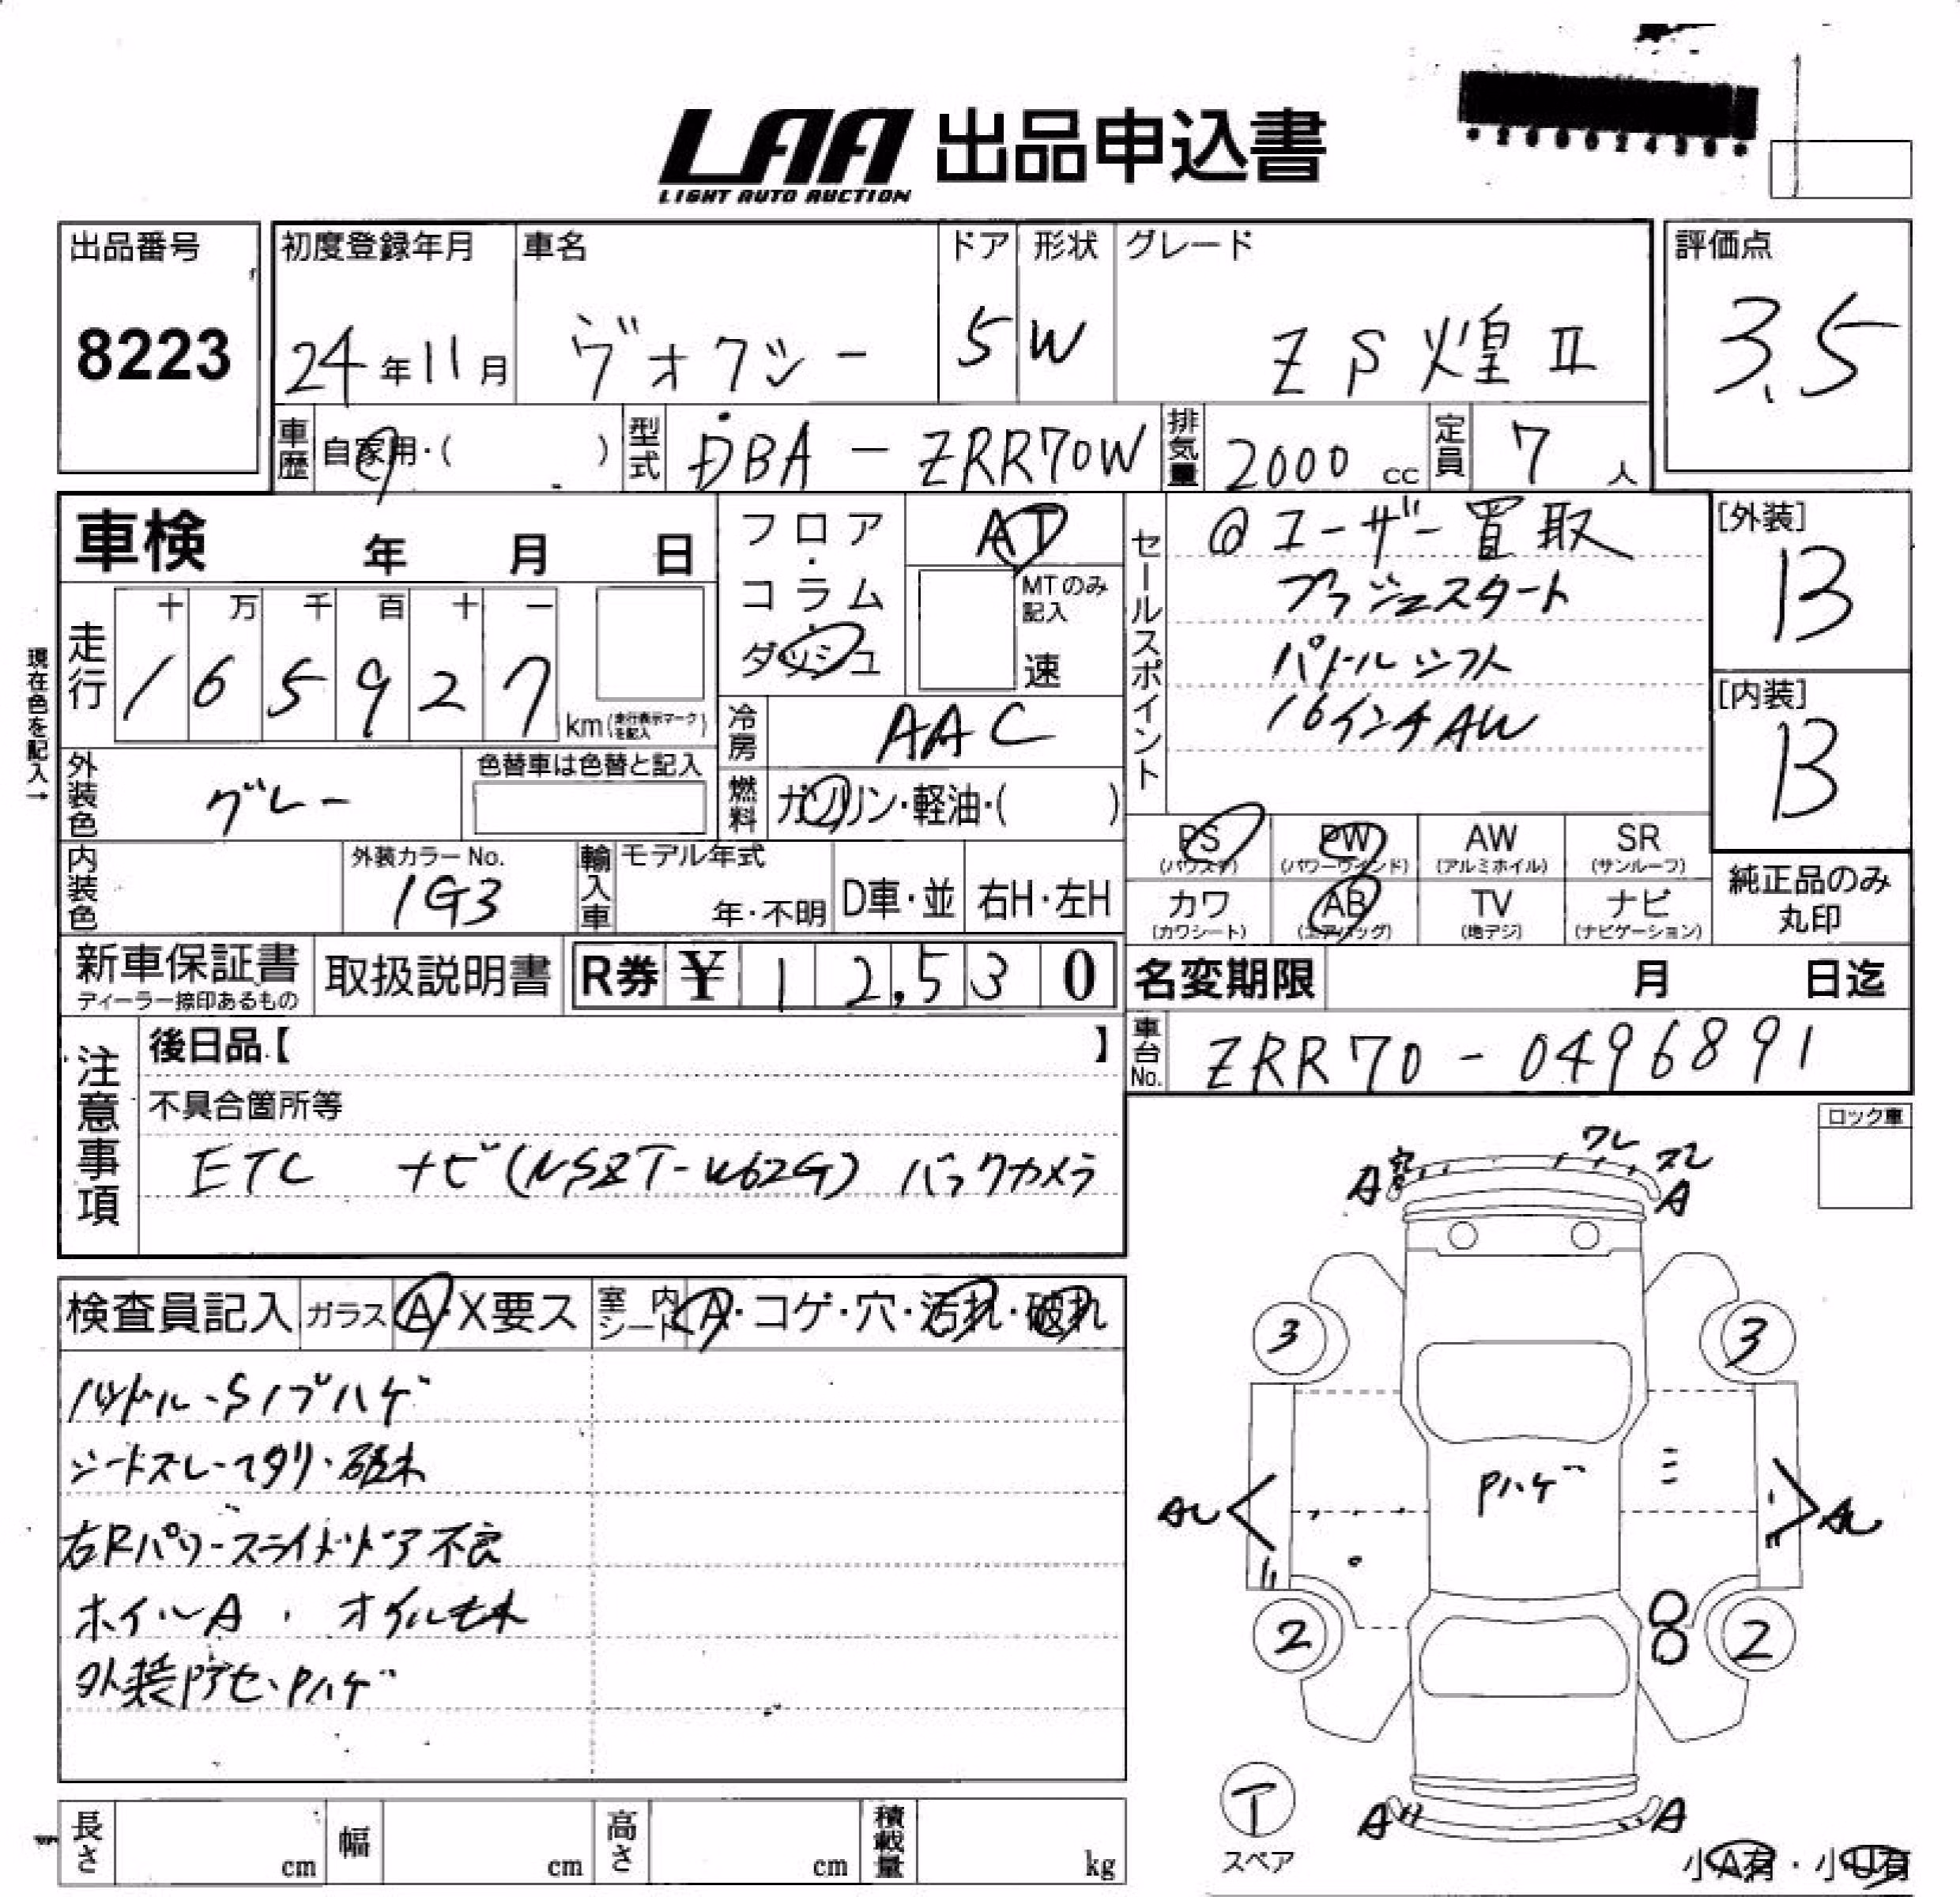 LAA 出品申込書
LIGHT AUTO AUCTION
出品番号
8223
初度登録年月
24年11月
車名
ヴォクシー
ドア
5
形状
W
グレード
ZS 煌 II
評価点
3.5
車歴
自家用・( )
型式
DBA - ZRR70W
排気量
2000 cc
定員
7 人
車検 年 月 日
フロア・コラム・ダッシュ
AT
MTのみ記入
速
セールスポイント
@ユーザー買取
プッシュスタート
パドルシフト
16インチAW
[外装]
B
[内装]
B
現在色を記入→
走行
十 万 千 百 十 一
1 6 5 9 2 7
km(走行表示マークを記入)
冷房
AAC
燃料
ガソリン・軽油・( )
外装色
グレー
色替車は色替と記入
内装色
外装カラーNo.
1G3
輸入車
モデル年式
年・不明
D車・並
右H・左H
PS (パワステ)
PW (パワーウインド)
AW (アルミホイル)
SR (サンルーフ)
カワ (カワシート)
AB (エアバッグ)
TV (地デジ)
ナビ (ナビゲーション)
純正品のみ丸印
新車保証書
ディーラー捺印あるもの
取扱説明書
R券 ¥ 12,530
名変期限 月 日迄
車台No.
ZRR70-0496891
注意事項
後日品【 】
不具合箇所等
ETC ナビ(NSZT-W62G) バックカメラ
ロック車
検査員記入
ガラス
A・X要ス
室内シート
A・コゲ・穴・汚れ・破れ
ハンドル・Sノブハゲ
シートスレ・ヘタリ・破れ
右Rパワースライドドア不良
ホイルA、オイルモレ
外装アセ、Pハゲ
A
ワレ
スレ
A
3
3
Pハゲ
2
2
T
スペア
A
A
小A有・小U有
長さ cm
幅 cm
高さ cm
積載量 kg